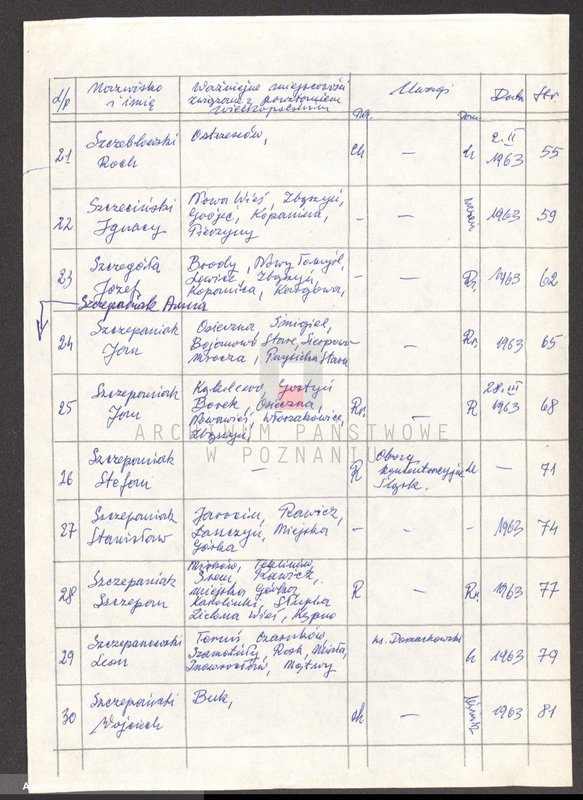 L/p Nazwisko i imię Ważniejsze miejscowości związane z powstaniem wielkopolskim Uwagi Data Str.
21 Szczebłowski Roch Ostrzeszów, ch — ch 2.II 1963 55
22 Szczeciński Ignacy Nowa Wieś, Zbąszyń, Kopanica, - — 1963 59
23 Szczegóła Józef Brody, Nowy Tomyśl, Zbąszyń, Kopanica, Kargowa, - — R. 1963 62
Szczepaniak Anna
24 Szczepaniak Jan Osieczna, Śmigiel, Bojanowo Stare, Sierpowo — Rn. 1963 65
25 Szczepaniak Jan Kąkolewo, Gostyń Borek, Osieczna, Nowawieś, Włoszakowice, Zbąszyń, Rn. — R 28.III 1963 68
26 Szczepaniak Stefan — R Obozy koncentracyjne Śląsk. — 71
27 Szczepaniak Stanisław Jarocin, Rawicz, Miejska Górka - — - 1963 74
28 Szczepaniak Szczepan Śrem, Rawicz, Miejska Górka Zielona Wieś, Kępno R — Rn. 1963 77
29 Szczepanowski Leon Toruń Czarnków, Szamotuły, Inowrocław, Mątwy ks. Domachowski 1963 79
30 Szczepański Wojciech Buk, ch — 1963 81
ARCHIWUM PAŃSTWOWE
W POZNANIU